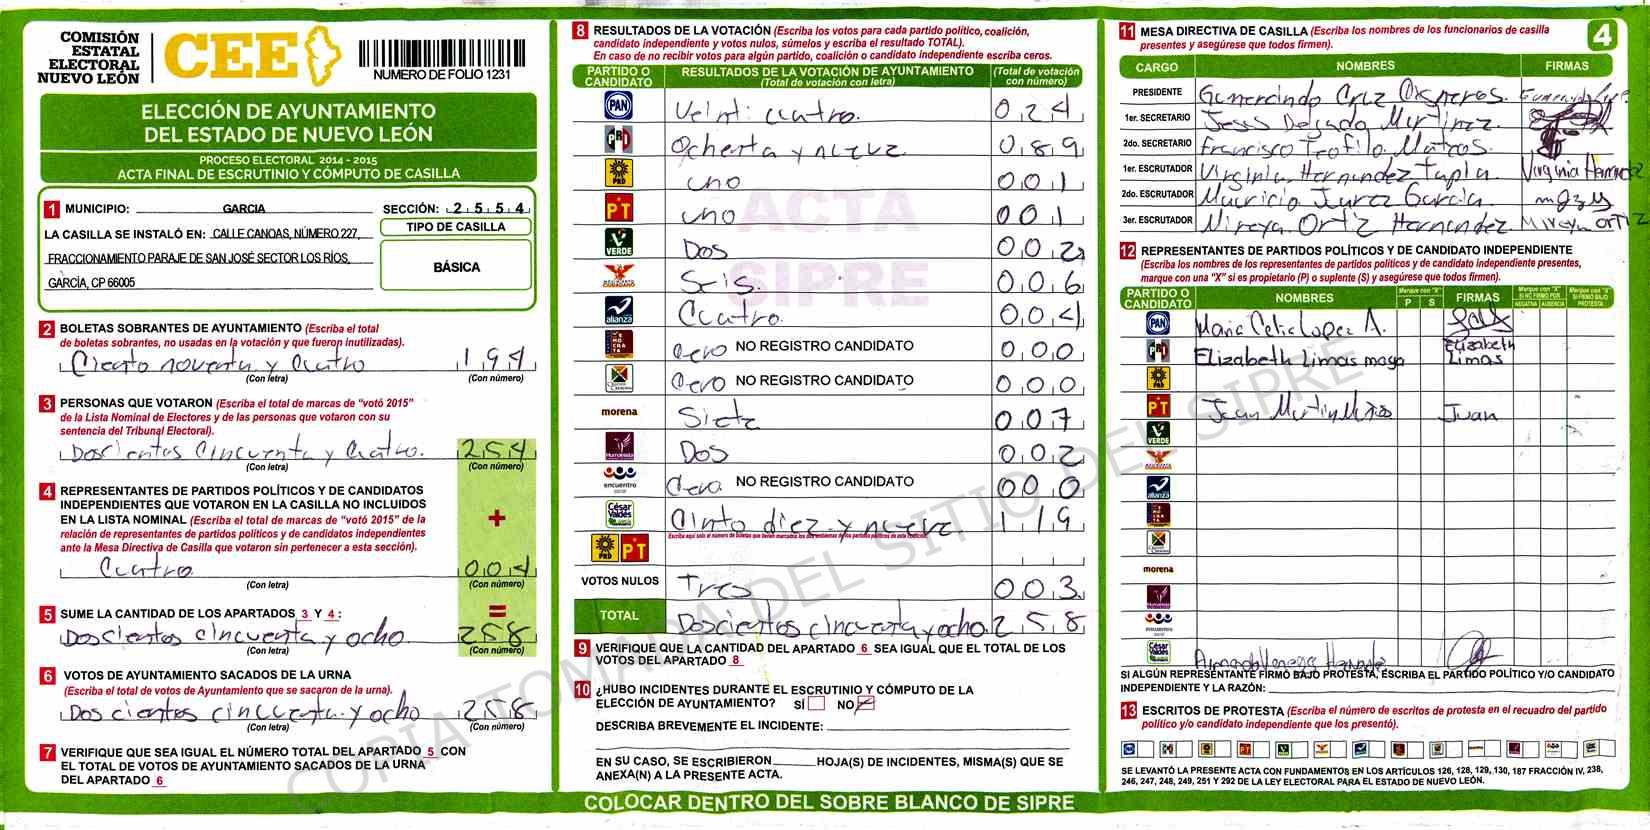 COMISIÓN
ESTATAL
ELECTORAL
NUEVO LEÓN
CEE
NUMERO DE FOLIO 1231
ELECCIÓN DE AYUNTAMIENTO
DEL ESTADO DE NUEVO LEÓN
PROCESO ELECTORAL 2014 - 2015
ACTA FINAL DE ESCRUTINIO Y CÓMPUTO DE CASILLA
1 MUNICIPIO: GARCIA SECCIÓN: 2 5 5 4
LA CASILLA SE INSTALÓ EN: CALLE CANOAS, NÚMERO 227,
FRACCIONAMIENTO PARAJE DE SAN JOSÉ SECTOR LOS RÍOS,
GARCÍA, CP 66005
TIPO DE CASILLA
BÁSICA
2 BOLETAS SOBRANTES DE AYUNTAMIENTO (Escriba el total
de boletas sobrantes, no usadas en la votación y que fueron inutilizadas).
Ciento noventa y cuatro 194
(Con letra) (Con número)
3 PERSONAS QUE VOTARON (Escriba el total de marcas de "votó 2015"
de la Lista Nominal de Electores y de las personas que votaron con su
sentencia del Tribunal Electoral).
Doscientos cincuenta y cuatro. 254
(Con letra) (Con número)
4 REPRESENTANTES DE PARTIDOS POLÍTICOS Y DE CANDIDATOS
INDEPENDIENTES QUE VOTARON EN LA CASILLA NO INCLUIDOS
EN LA LISTA NOMINAL (Escriba el total de marcas de "votó 2015" de la
relación de representantes de partidos políticos y de candidatos independientes
ante la Mesa Directiva de Casilla que votaron sin pertenecer a esta sección).
+
Cuatro 004
(Con letra) (Con número)
=
5 SUME LA CANTIDAD DE LOS APARTADOS 3 Y 4 :
Doscientos cincuenta y ocho. 258
(Con letra) (Con número)
6 VOTOS DE AYUNTAMIENTO SACADOS DE LA URNA
(Escriba el total de votos de Ayuntamiento que se sacaron de la urna).
Dos cientos cincuenta y ocho 258
(Con letra) (Con número)
7 VERIFIQUE QUE SEA IGUAL EL NÚMERO TOTAL DEL APARTADO 5 CON
EL TOTAL DE VOTOS DE AYUNTAMIENTO SACADOS DE LA URNA
DEL APARTADO 6
8 RESULTADOS DE LA VOTACIÓN (Escriba los votos para cada partido político, coalición,
candidato independiente y votos nulos, súmelos y escriba el resultado TOTAL).
En caso de no recibir votos para algún partido, coalición o candidato independiente escriba ceros.
PARTIDO O CANDIDATO RESULTADOS DE LA VOTACIÓN DE AYUNTAMIENTO (Total de votación con letra) (Total de votación con número)
PAN Veinti cuatro. 024
PRI Ochenta y nueve 089
PRD uno 001
PT uno 001
VERDE Dos 002
Seis. 006
alianza Cuatro. 004
Cero NO REGISTRO CANDIDATO 000
Cero NO REGISTRO CANDIDATO 000
morena Siete 007
Humanista Dos 002
encuentro social Cero NO REGISTRO CANDIDATO 000
César Valdés Cinto diez y nueve 119
PRD PT
VOTOS NULOS Tres 003
TOTAL Doscientos cincuenta y ocho. 258
ACTA
SIPRE
9 VERIFIQUE QUE LA CANTIDAD DEL APARTADO 6 SEA IGUAL QUE EL TOTAL DE LOS
VOTOS DEL APARTADO 8
10 ¿HUBO INCIDENTES DURANTE EL ESCRUTINIO Y CÓMPUTO DE LA
ELECCIÓN DE AYUNTAMIENTO? SÍ NO
DESCRIBA BREVEMENTE EL INCIDENTE:
EN SU CASO, SE ESCRIBIERON HOJA(S) DE INCIDENTES, MISMA(S) QUE SE
ANEXA(N) A LA PRESENTE ACTA.
COLOCAR DENTRO DEL SOBRE BLANCO DE SIPRE
11 MESA DIRECTIVA DE CASILLA (Escriba los nombres de los funcionarios de casilla
presentes y asegúrese que todos firmen).
4
CARGO NOMBRES FIRMAS
PRESIDENTE Gumercindo Cruz Cisneros.
1er. SECRETARIO Jesus Delgado Martinez.
2do. SECRETARIO Francisco Teofilo Mateos.
1er. ESCRUTADOR Virginia Hernandez Tapia. Virginia Hernande
2do. ESCRUTADOR Mauricio Juarez Garcia.
3er. ESCRUTADOR Mireya Ortiz Hernandez. Mireya ORTIZ
12 REPRESENTANTES DE PARTIDOS POLÍTICOS Y DE CANDIDATO INDEPENDIENTE
(Escriba los nombres de los representantes de partidos políticos y de candidato independiente presentes,
marque con una "X" si es propietario (P) o suplente (S) y asegúrese que todos firmen).
PARTIDO O CANDIDATO NOMBRES Marque con "X" P S FIRMAS Marque con "X" SI NO FIRMÓ POR NEGATIVA AUSENCIA Marque con "X" SI FIRMÓ BAJO PROTESTA
PAN Maria Celia Lopez A.
PRI Elizabeth Limas moya Elizabeth Limas
PRD
PT Juan Martin Juan
VERDE
alianza
morena
encuentro social
César Valdés
SI ALGÚN REPRESENTANTE FIRMÓ BAJO PROTESTA, ESCRIBA EL PARTIDO POLÍTICO Y/O CANDIDATO
INDEPENDIENTE Y LA RAZÓN:
13 ESCRITOS DE PROTESTA (Escriba el número de escritos de protesta en el recuadro del partido
político y/o candidato independiente que los presentó).
SE LEVANTÓ LA PRESENTE ACTA CON FUNDAMENTOS EN LOS ARTÍCULOS 126, 128, 129, 130, 187 FRACCIÓN IV, 238,
246, 247, 248, 249, 251 Y 292 DE LA LEY ELECTORAL PARA EL ESTADO DE NUEVO LEÓN.
COPIA TOMADA DEL SITIO DEL SIPRE